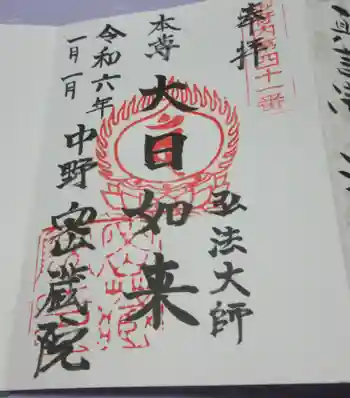 奉拝
弘法大師
本尊
大日如来
令和六年
一月一日
中野
密蔵院